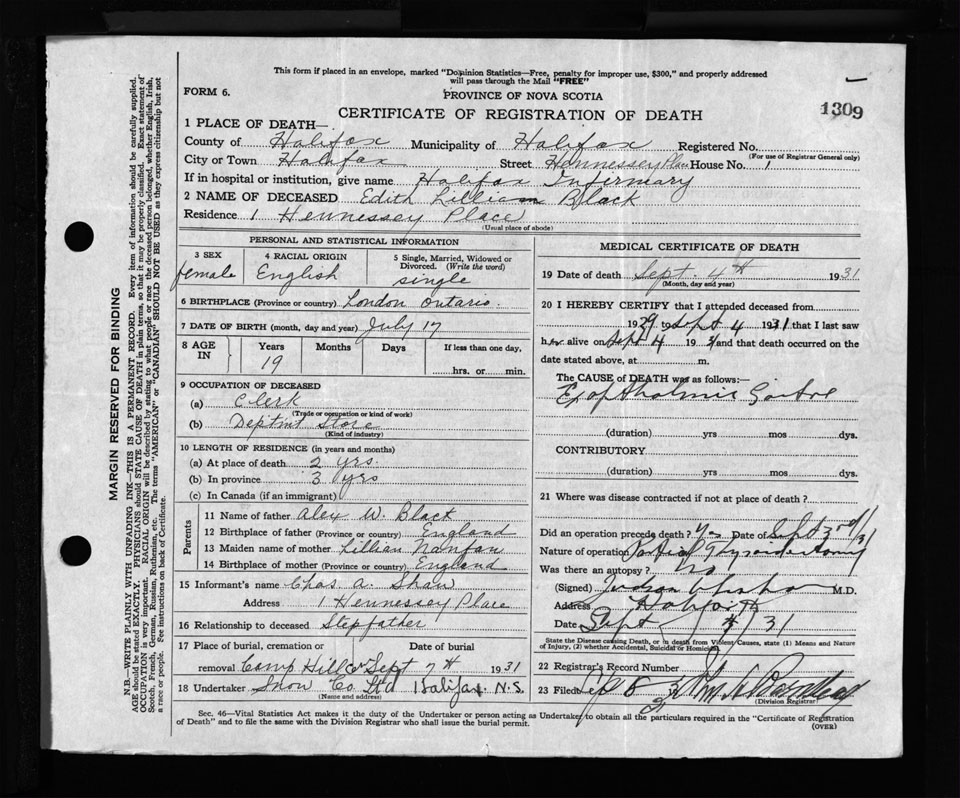 This form if placed in an envelope, marked "Dominion Statistics—Free, penalty for improper use, $300," and properly addressed
will pass through the Mail "FREE"
FORM 6.
PROVINCE OF NOVA SCOTIA
CERTIFICATE OF REGISTRATION OF DEATH
1309
1 PLACE OF DEATH—
County of Halifax Municipality of Halifax Registered No.
(For use of Registrar General only)
City or Town Halifax Street Hennessey Place House No. 1
If in hospital or institution, give name Halifax Infirmary
2 NAME OF DECEASED Edith Lillian Black
Residence 1 Hennessey Place
(Usual place of abode)
PERSONAL AND STATISTICAL INFORMATION
3 SEX
female
4 RACIAL ORIGIN
English
5 Single, Married, Widowed or
Divorced. (Write the word)
single
6 BIRTHPLACE (Province or country) London Ontario.
7 DATE OF BIRTH (month, day and year) July 17
8 AGE
IN
Years
19
Months
Days
If less than one day,
hrs. or min.
9 OCCUPATION OF DECEASED
(a) Clerk
(Trade or occupation or kind of work)
(b) Deptmt Store
(Kind of industry)
10 LENGTH OF RESIDENCE (in years and months)
(a) At place of death 2 yrs.
(b) In province 3 yrs
(c) In Canada (if an immigrant)
Parents
11 Name of father Alex W. Black
12 Birthplace of father (Province or country) England
13 Maiden name of mother Lillian
14 Birthplace of mother (Province or country) England
15 Informant's name Chas A. Shaw
Address 1 Hennessey Place
16 Relationship to deceased Stepfather
17 Place of burial, cremation or
Date of burial
removal Camp Hill Sept 7th 1931
18 Undertaker Snow Co Ltd Halifax N.S.
(Name and address)
MEDICAL CERTIFICATE OF DEATH
19 Date of death Sept. 4th 1931
(Month, day and year)
20 I HEREBY CERTIFY that I attended deceased from
1929 to Sept 4 1931 that I last saw
her alive on Sept 4 1931 and that death occurred on the
date stated above, at m.
The CAUSE of DEATH was as follows:—
Exopthalmic Goitre
(duration) yrs mos dys.
CONTRIBUTORY
(duration) yrs mos dys.
21 Where was disease contracted if not at place of death?
Did an operation precede death? Yes Date of Sept 3rd/31
Nature of operation Partial Thyroidectomy
Was there an autopsy? No
(Signed) M.D.
Address Halifax
Date Sept 31
State the Disease causing Death, or in death from Violent Causes, state (1) Means and Nature
of Injury, (2) whether Accidental, Suicidal or Homicidal
22 Registrar's Record Number
23 Filed 8
(Division Registrar)
Sec. 46—Vital Statistics Act makes it the duty of the Undertaker or person acting as Undertaker to obtain all the particulars required in the "Certificate of Registration
of Death" and to file the same with the Division Registrar who shall issue the burial permit.
(OVER)
MARGIN RESERVED FOR BINDING
N.B.—WRITE PLAINLY WITH UNFADING INK—THIS IS A PERMANENT RECORD. Every item of information should be carefully supplied.
AGE should be stated EXACTLY. PHYSICIANS should STATE CAUSE OF DEATH in plain terms, so that it may be properly classified. Exact statement of
OCCUPATION is very important. RACIAL ORIGIN will be described by stating to what people or race the deceased person belonged, whether English, Irish,
Scotch, French, German, Russian, Ruthenian, etc. The terms "AMERICAN" or "CANADIAN" SHOULD NOT BE USED as they express citizenship but not
a race or people. See instructions on back of Certificate.